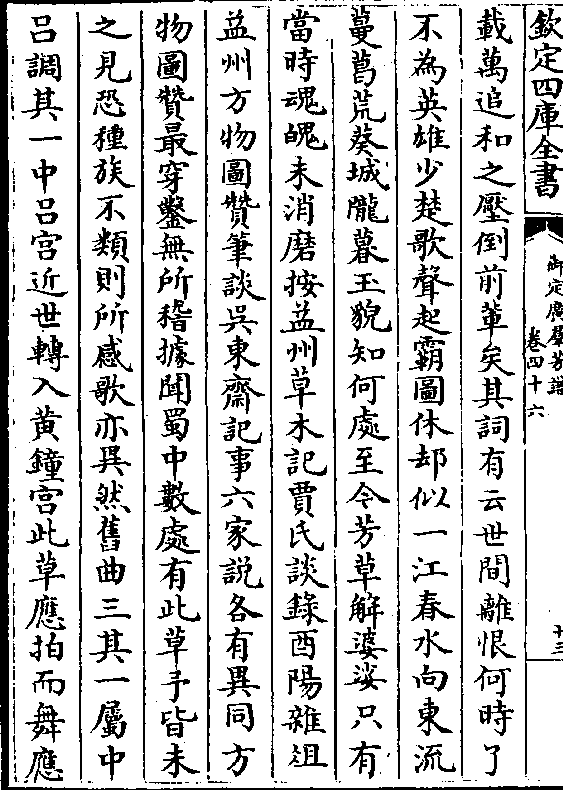 欽定四庫全書
御定廣羣芳譜
卷四十六
十三
載萬追和之壓倒前輩矣其詞有云世間離恨何時了
不為英雄少楚歌聲起霸圖休却似一江春水向東流
蔓葛荒葵城隴暮玉貌知何處至今芳草解婆娑只有
當時魂魄未消磨按益州草木記賈氏談錄酉陽雜俎
益州方物圖贊筆談吳東齋記事六家説各有異同方
物圖贊最穿鑿無所稽據聞蜀中數處有此草予皆未
之見恐種族不類則所感歌亦異然舊曲三其一屬中
吕調其一中吕宫近世轉入黄鐘宫此草應拍而舞應